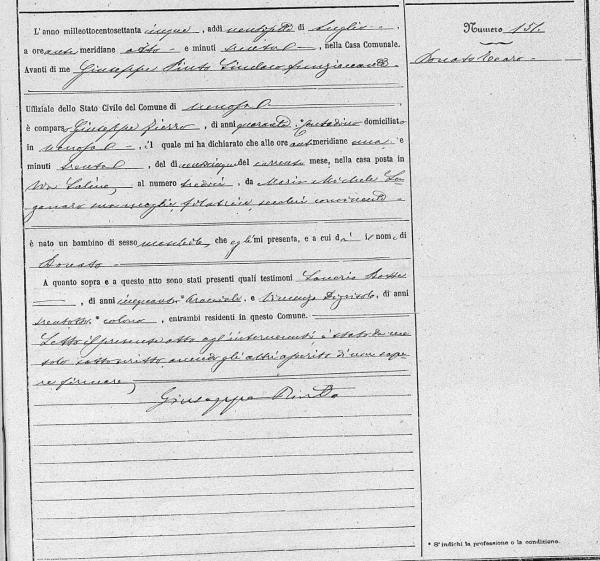 Numero 151.
Donato
L'anno milleottocentosettanta cinque, addì di Luglio
a ore ante meridiane otto e minuti trenta, nella Casa Comunale.
Avanti di me Giuseppe Pinto Sindaco
Uffiziale dello Stato Civile del Comune di Venosa
è comparso Giuseppe, di anni quaranta Contadino domiciliato
in Venosa, il quale mi ha dichiarato che alle ore ant meridiane una e
minuti trenta, del dì del corrente mese, nella casa posta in
al numero tredici, da Maria Michela
sua moglie filatrice, seco lui convivente
è nato un bambino di sesso maschile che egli mi presenta, e a cui dà il nome di
Donato
A quanto sopra e a questo atto sono stati presenti quali testimoni
, di anni cinquanta, e Vincenzo, di anni
trentotto colono, entrambi residenti in questo Comune.
Letto il presente atto agl'intervenuti è stato da me
solo sottoscritto avendo gli altri asserito di non sape-
re firmare
Giuseppe Pinto
* S'indichi la professione o la condizione.